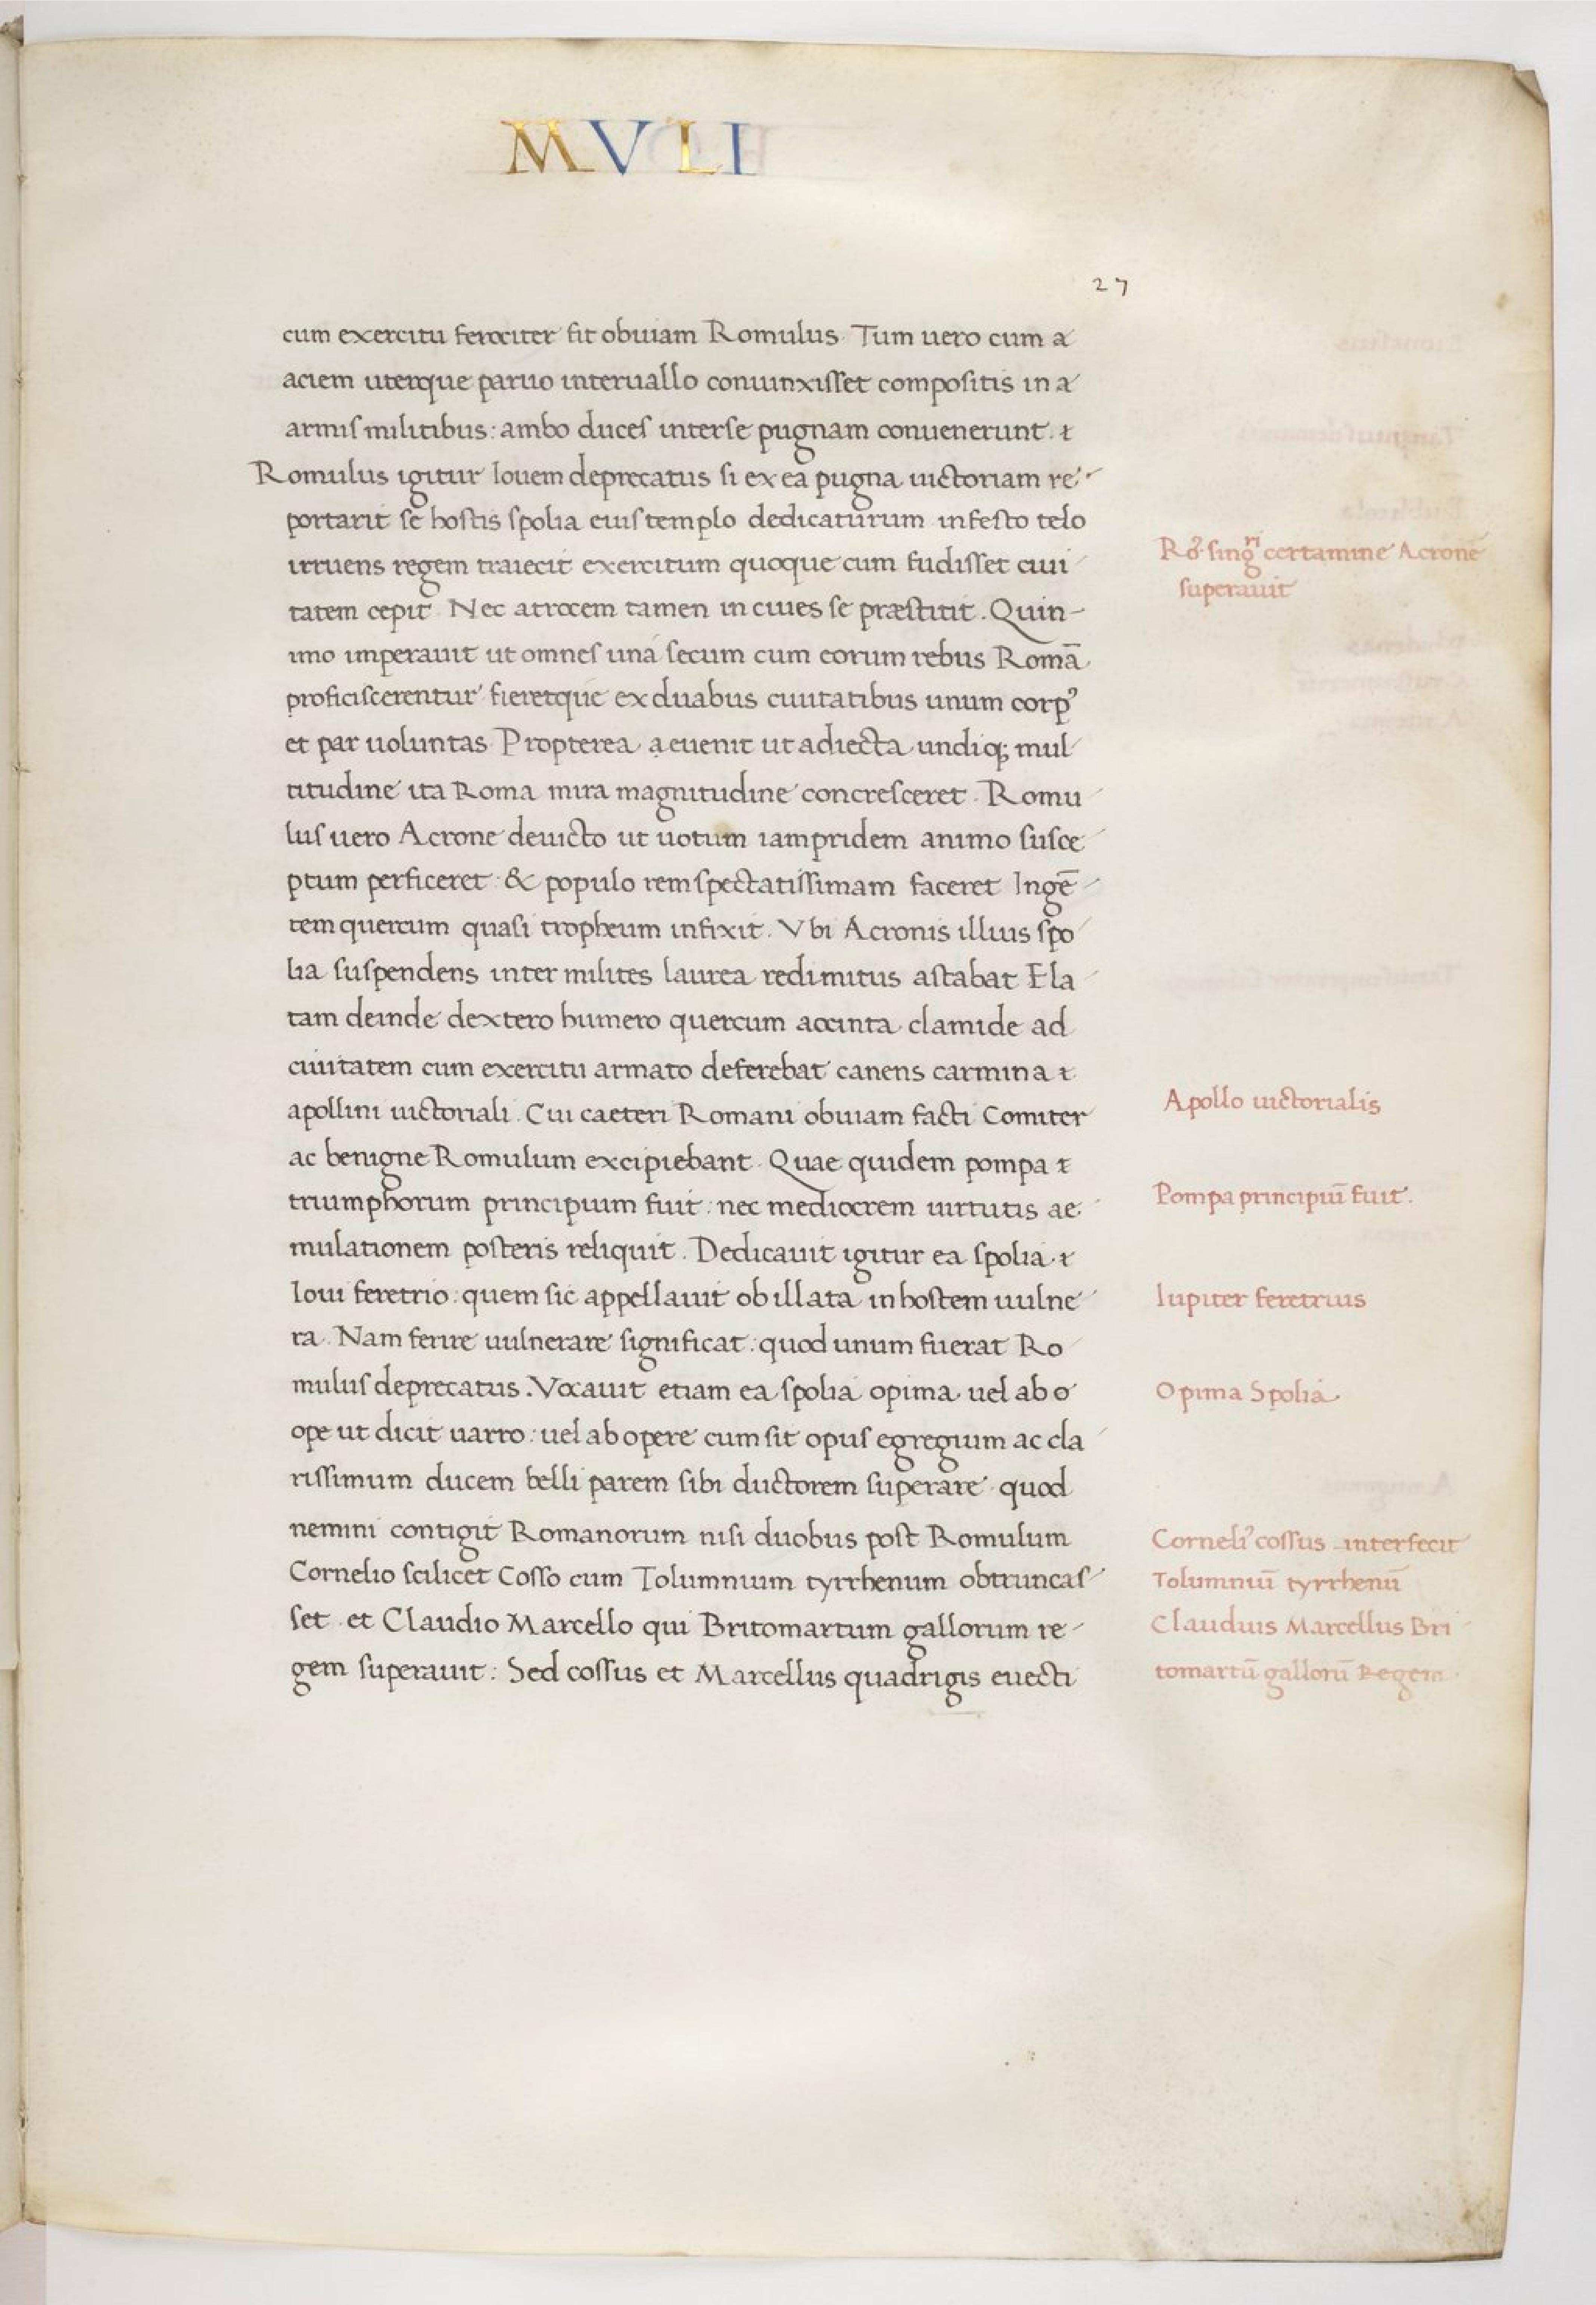 MVLI
27
cum exercitu ferociter fit obuiam Romulus. Tum uero cum a
aciem uterque paruo interuallo coniunxisset compositis in a
armis militibus: ambo duces interse pugnam conuenerunt. t
Romulus igitur Iouem deprecatus si ex ea pugna uictoriam re
portarit se hostis spolia eius templo dedicaturum infesto telo
irruens regem traiecit exercitum quoque cum fudisset ciui
tatem cepit. Nec atrocem tamen in ciues se præstitit. Quin-
imo imperauit ut omnes uná secum cum eorum rebus Romā
proficiscerentur fieretque ex duabus ciuitatibus unum corpꝰ
et par uoluntas. Propterea aeuenit ut adiecta undiq; mul
titudine ita Roma mira magnitudine concresceret. Romu
lus uero Acrone deuicto ut uotum iampridem animo susce
ptum perficeret: & populo rem spectatissimam faceret Ingē
tem quercum quasi tropheum infixit. Vbi Acronis illius spo
lia suspendens inter milites laurea redimitus astabat Ela
tam deinde dextero humero quercum accinta clamide ad
ciuitatem cum exercitu armato deferebat canens carmina t
apollini uictoriali. Cui caeteri Romani obuiam facti Comiter
ac benigne Romulum excipiebant. Quae quidem pompa t
triumphorum principium fuit: nec mediocrem uirtutis ae
mulationem posteris reliquit. Dedicauit igitur ea spolia t
Ioui feretrio: quem sic appellauit ob illata in hostem uulne
ra. Nam ferire uulnerare significat: quod unum fuerat Ro
mulus deprecatus. Vocauit etiam ea spolia opima uel ab o
ope ut dicit uarro: uel ab opere cum sit opus egregium ac cla
rissimum ducem belli parem sibi ductorem superare quod
nemini contigit Romanorum nisi duobus post Romulum
Cornelio scilicet Cosso cum Tolumnium tyrrhenum obtruncas
set et Claudio Marcello qui Britomartum gallorum re-
gem superauit: Sed cossus et Marcellus quadrigis euecti
Roꝰ. singri certamine Acronē
superauit
Apollo uictorialis
Pompa principiū fuit.
Iupiter feretrius
Opima Spolia
Corneliꝰ cossus interfecit
Tolumniū tyrrhenū
Claudius Marcellus Bri
tomartū gallorū Regem